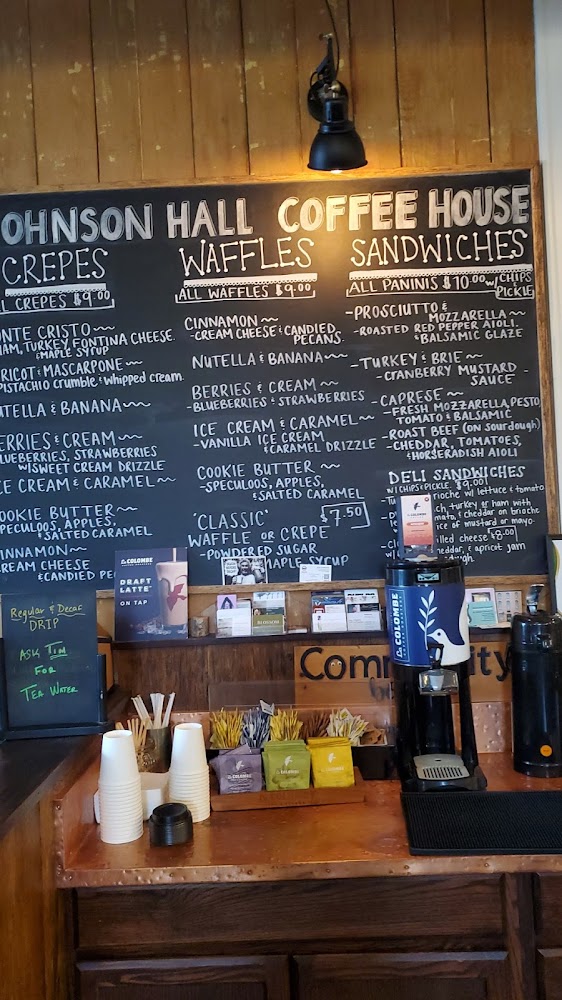 OHNSON HALL COFFEE HOUSE
CREPES
L CREPES $9.00
ONTE CRISTO
HAM, TURKEY, FONTINA CHEESE
& MAPLE SYRUP
RICOT & MASCARPONE
PISTACHIO CRUMBLE & WHIPPED CREAM
UTELLA & BANANA
ERRIES & CREAM
LUEBERRIES, STRAWBERRIES
W/ SWEET CREAM DRIZZLE
CE CREAM & CARAMEL
OOKIE BUTTER
SPECULOOS, APPLES,
& SALTED CARAMEL
INNAMON
REAM CHEESE
& CANDIED PE
WAFFLES
ALL WAFFLES $9.00
CINNAMON
-CREAM CHEESE & CANDIED
PECANS
NUTELLA & BANANA
BERRIES & CREAM
-BLUEBERRIES & STRAWBERRIES
ICE CREAM & CARAMEL
-VANILLA ICE CREAM
& CARAMEL DRIZZLE
COOKIE BUTTER
-SPECULOOS, APPLES,
& SALTED CARAMEL
'CLASSIC' $7.50
WAFFLE OR CREPE
-POWDERED SUGAR
MAPLE SYRUP
SANDWICHES
ALL PANINIS $10.00 W/ CHIPS
PICKLE
-PROSCIUTTO &
MOZZARELLA
-ROASTED RED PEPPER AIOLI
& BALSAMIC GLAZE
-TURKEY & BRIE
-CRANBERRY MUSTARD
SAUCE
-CAPRESE
-FRESH MOZZARELLA, PESTO,
TOMATO & BALSAMIC
-ROAST BEEF (ON SOURDOUGH)
-CHEDDAR, TOMATOES,
& HORSERADISH AIOLI
DELI SANDWICHES
W/ CHIPS & PICKLE $9.00
brioche w/ lettuce & tomato
turkey or ham with
cheddar on brioche
ice of mustard or mayo
illed cheese $8.00
cheddar, & apricot jam
LA COLOMBE
DRAFT
LATTE
ON TAP
Regular & Decaf
DRIP
ASK TIM
FOR
TEA WATER
La COLOMBE
Comm ity